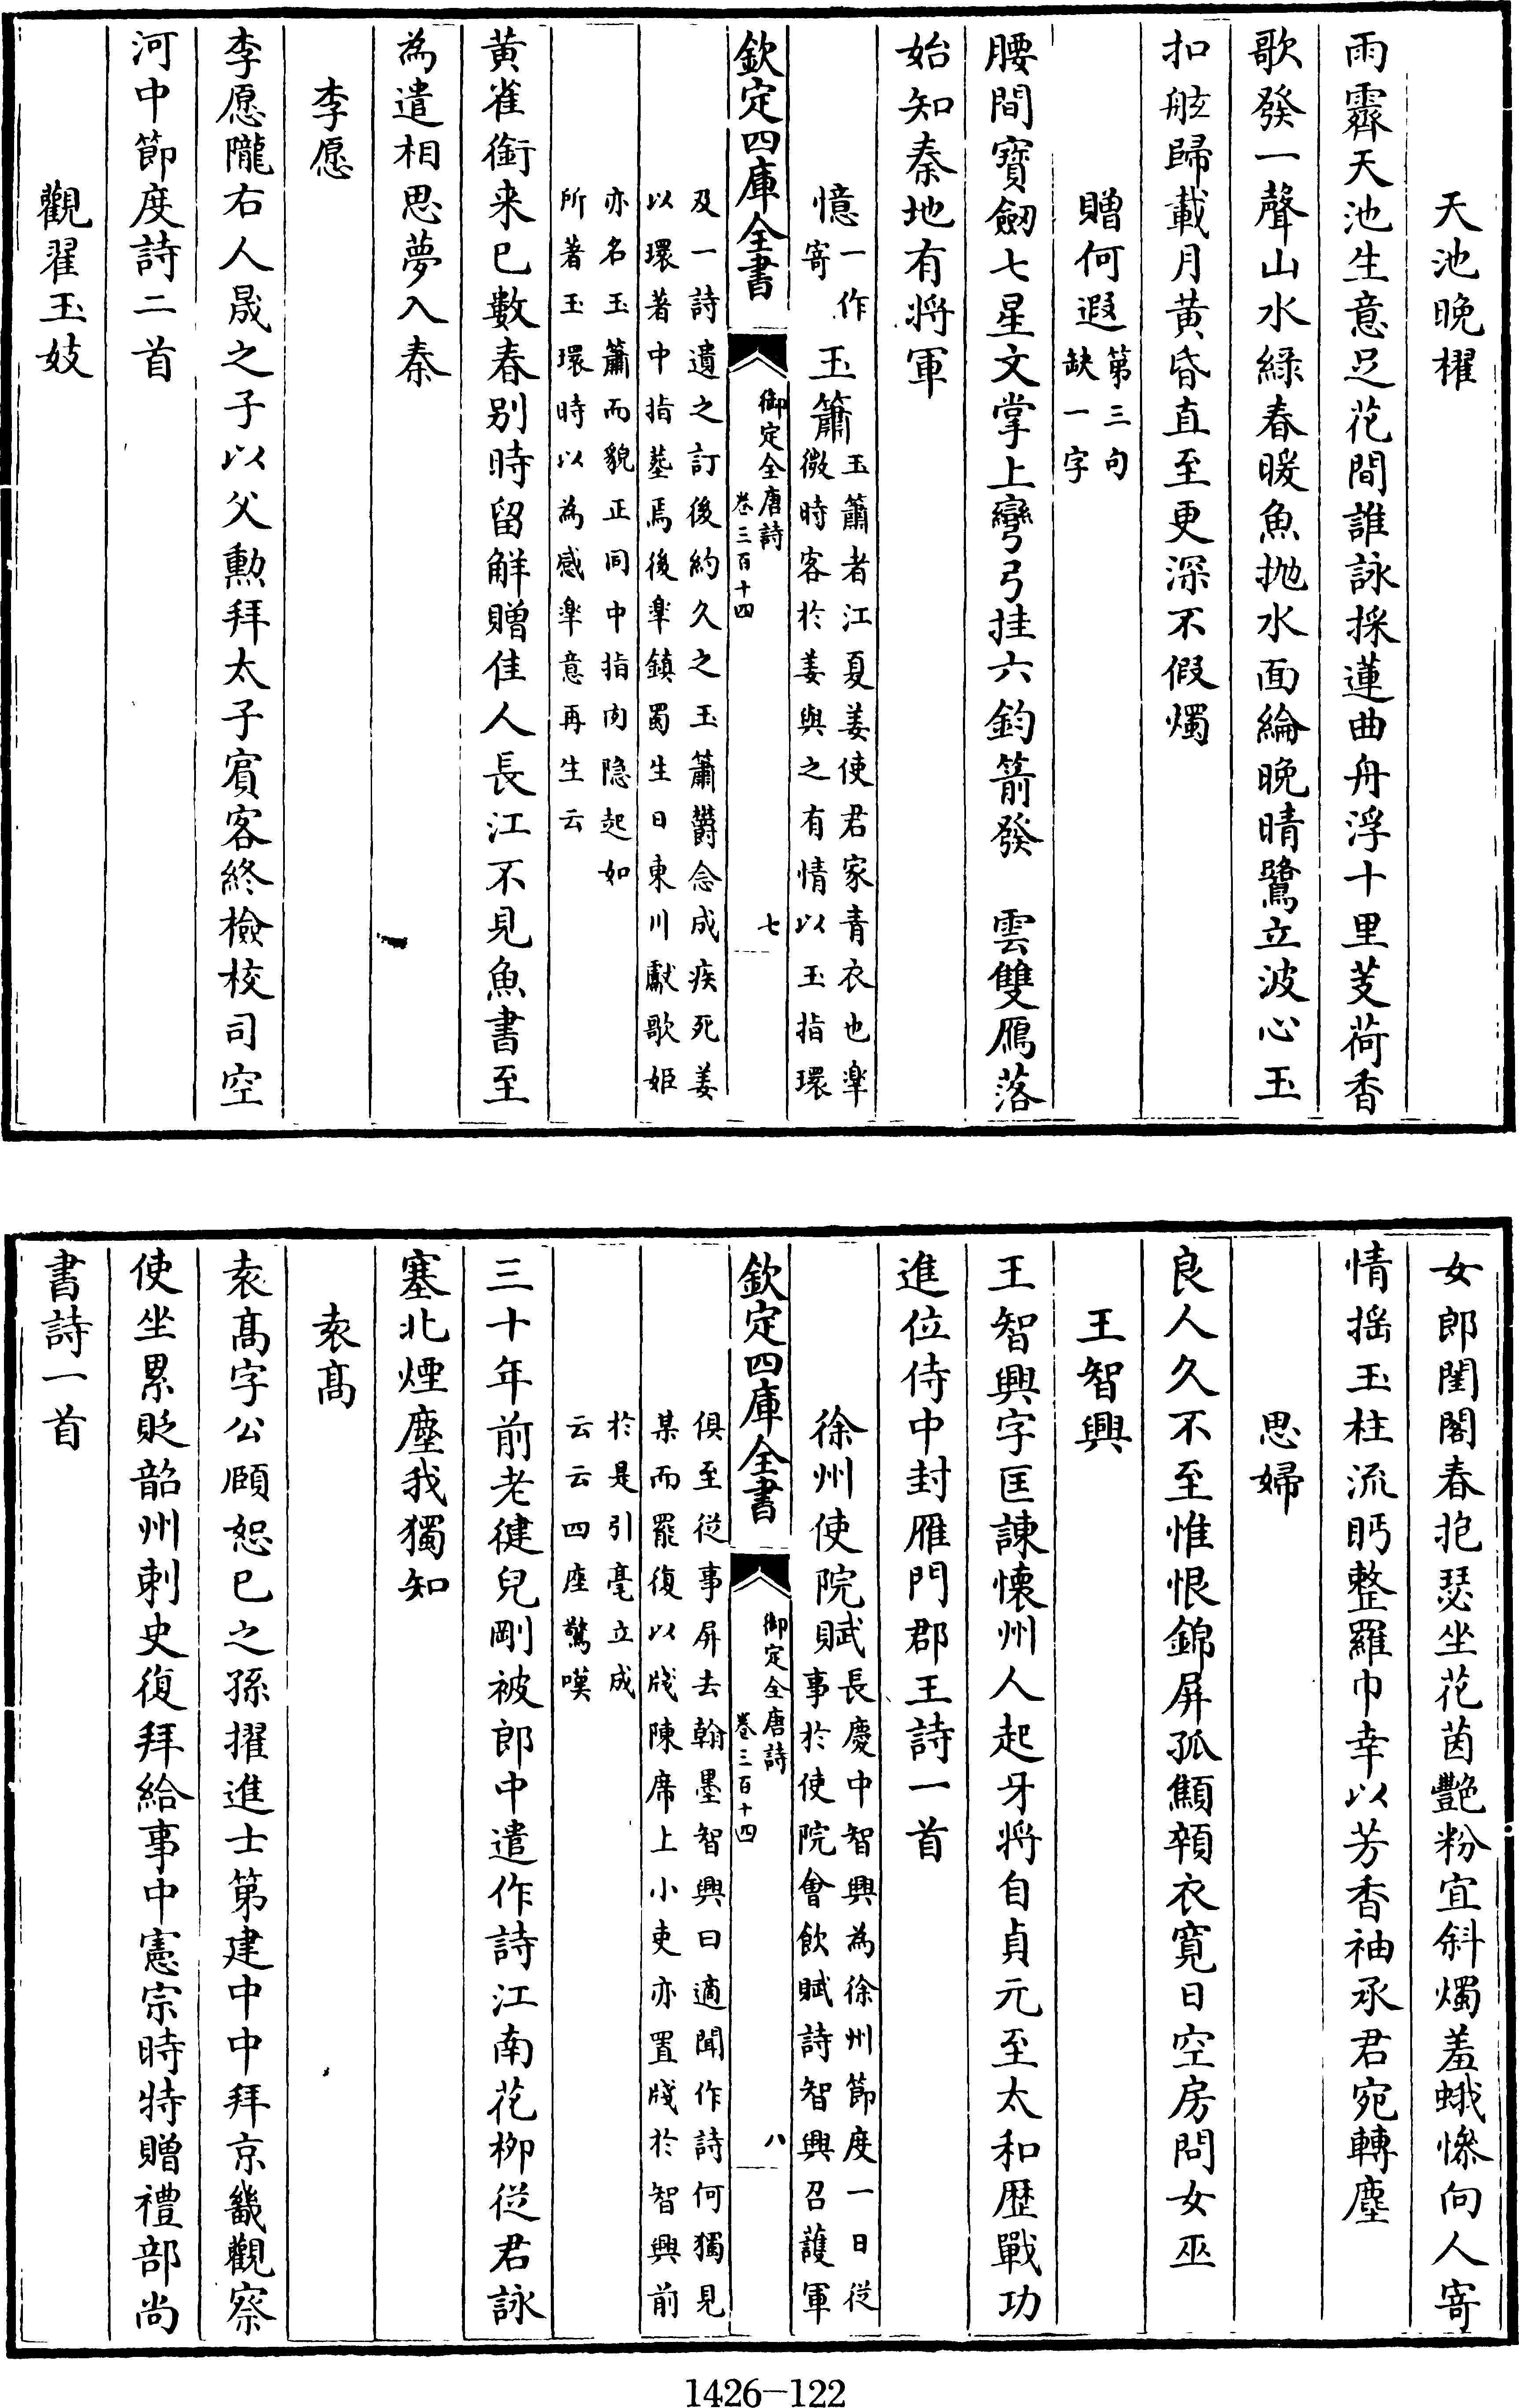 天池晚櫂
雨霽天池生意足花間誰詠採蓮曲舟浮十里芰荷香
歌發一聲山水緑春暖魚抛水面綸晚晴鷺立波心玉
扣舷歸載月黄昏直至更深不假燭
贈何遐第三句缺一字
腰間寶劒七星文掌上彎弓挂六鈞箭發　雲雙鴈落
始知秦地有將軍
憶一作寄玉簫玉簫者江夏姜使君家青衣也臯微時客於姜與之有情以玉指環
欽定四庫全書
御定全唐詩
卷三百十四
七
及一詩遺之訂後約久之玉簫欝念成疾死姜以環著中指塟焉後臯鎮蜀生日東川獻歌姬
亦名玉簫而貌正同中指肉隐起如所著玉環時以為感臯意再生云
黄雀銜来已數春别時留觧贈佳人長江不見魚書至
為遣相思夢入秦
李愿
李愿隴右人晟之子以父勲拜太子賓客終檢校司空
河中節度詩二首
觀翟玉妓
女郎閨閣春抱瑟坐花茵艷粉宜斜燭羞蛾慘向人寄
情摇玉柱流眄整羅巾幸以芳香袖承君宛轉塵
思婦
良人久不至惟恨錦屏孤顦顇衣寛日空房問女巫
王智興
王智興字匡諫懷州人起牙將自貞元至太和歴戰功
進位侍中封雁門郡王詩一首
徐州使院賦長慶中智興為徐州節度一日從事於使院會飲賦詩智興召䕶軍
欽定四庫全書
御定全唐詩
卷三百十四
八
俱至從事屏去翰墨智興曰適聞作詩何獨見某而罷復以牋陳席上小吏亦置牋於智興前
於是引毫立成云云四座驚嘆
三十年前老健兒剛被郎中遣作詩江南花栁從君詠
塞北煙塵我獨知
袁髙
袁髙字公頤恕己之孫擢進士第建中中拜京畿觀察
使坐累貶韶州刺史復拜給事中憲宗時特贈禮部尚
書詩一首
1426-122